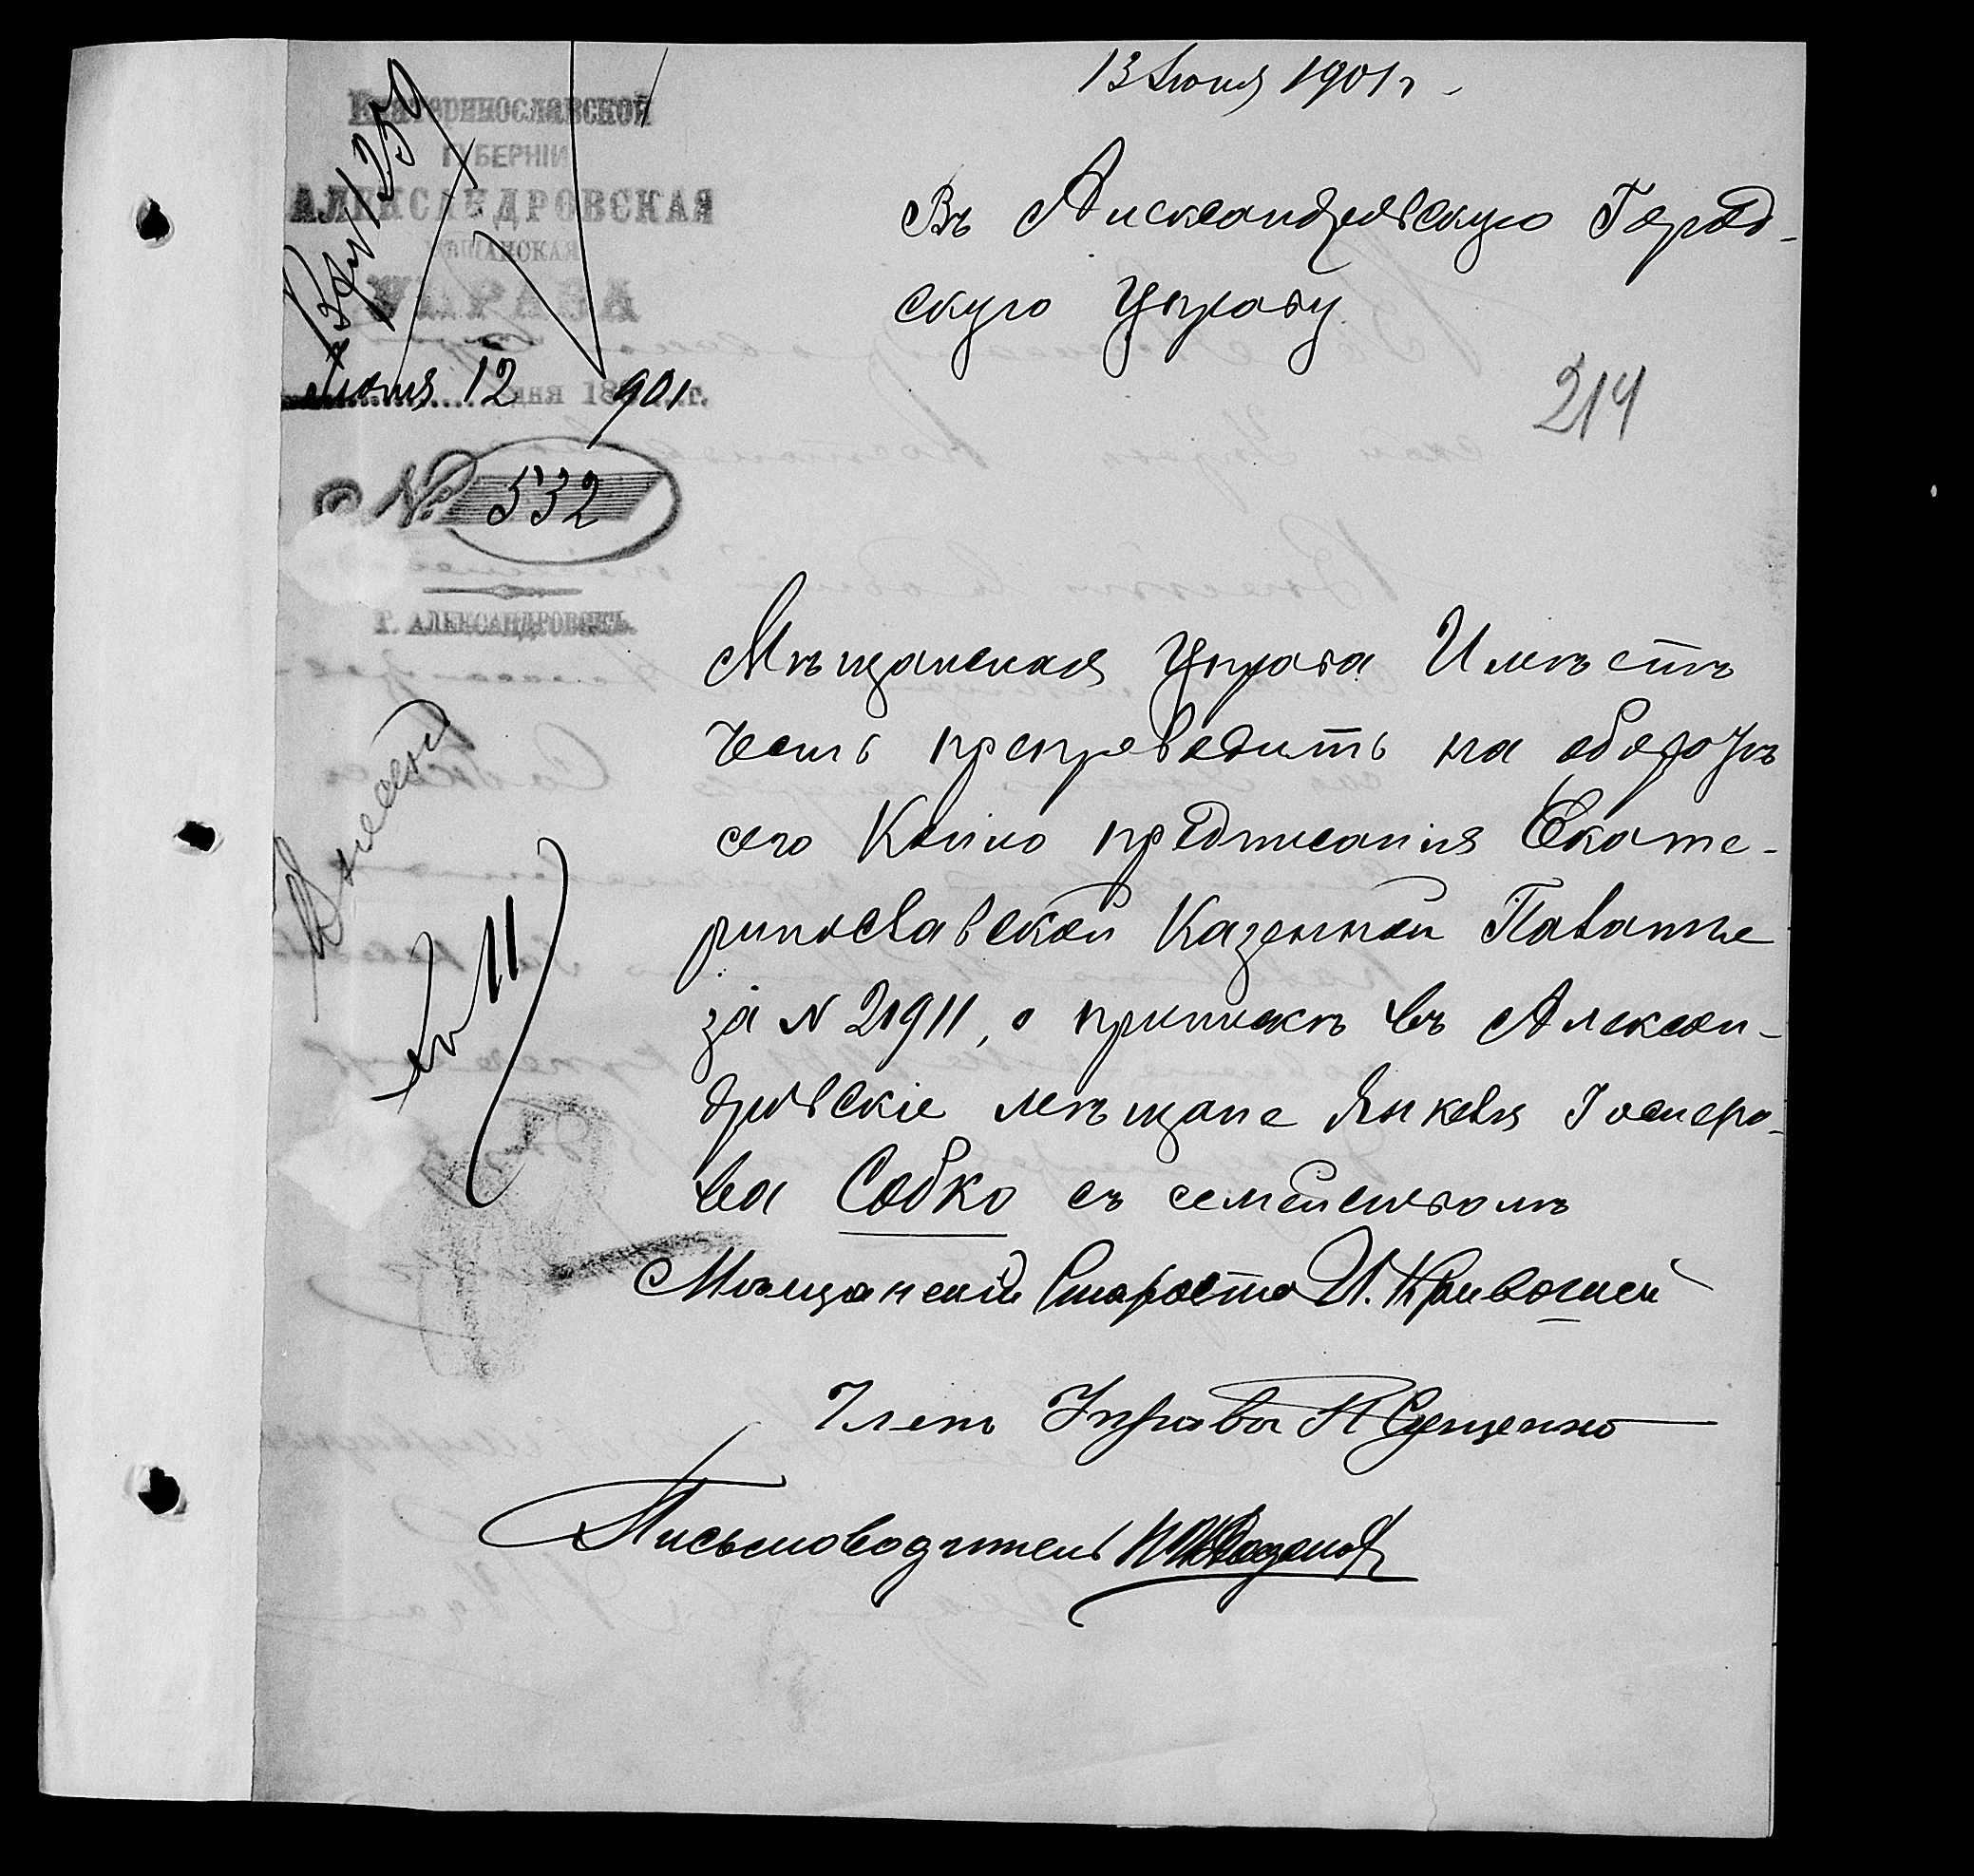 13 Іюня 1901 г.
Екатеринославской
ГУБЕРНІИ
АЛЕКСАНДРОВСКАЯ
МѢЩАНСКАЯ
УПРАВА
Іюня 12 дня 18 901 г.
№ 532
Г. АЛЕКСАНДРОВСКЪ.
Въ Александровскую Город-
скую Управу
214
Мѣщанская Управа Имѣетъ
честь препроводить на оборотѣ
сего Копію предписанія Екате-
ринославской Казенной Палаты
за N 21911, о припискѣ въ Алексан-
дровскіе мѣщане Янкеля Іосифо-
ва Собко съ семействомъ
Мѣщанскій Староста И. Кривошей
Членъ Управы
Письмоводитель